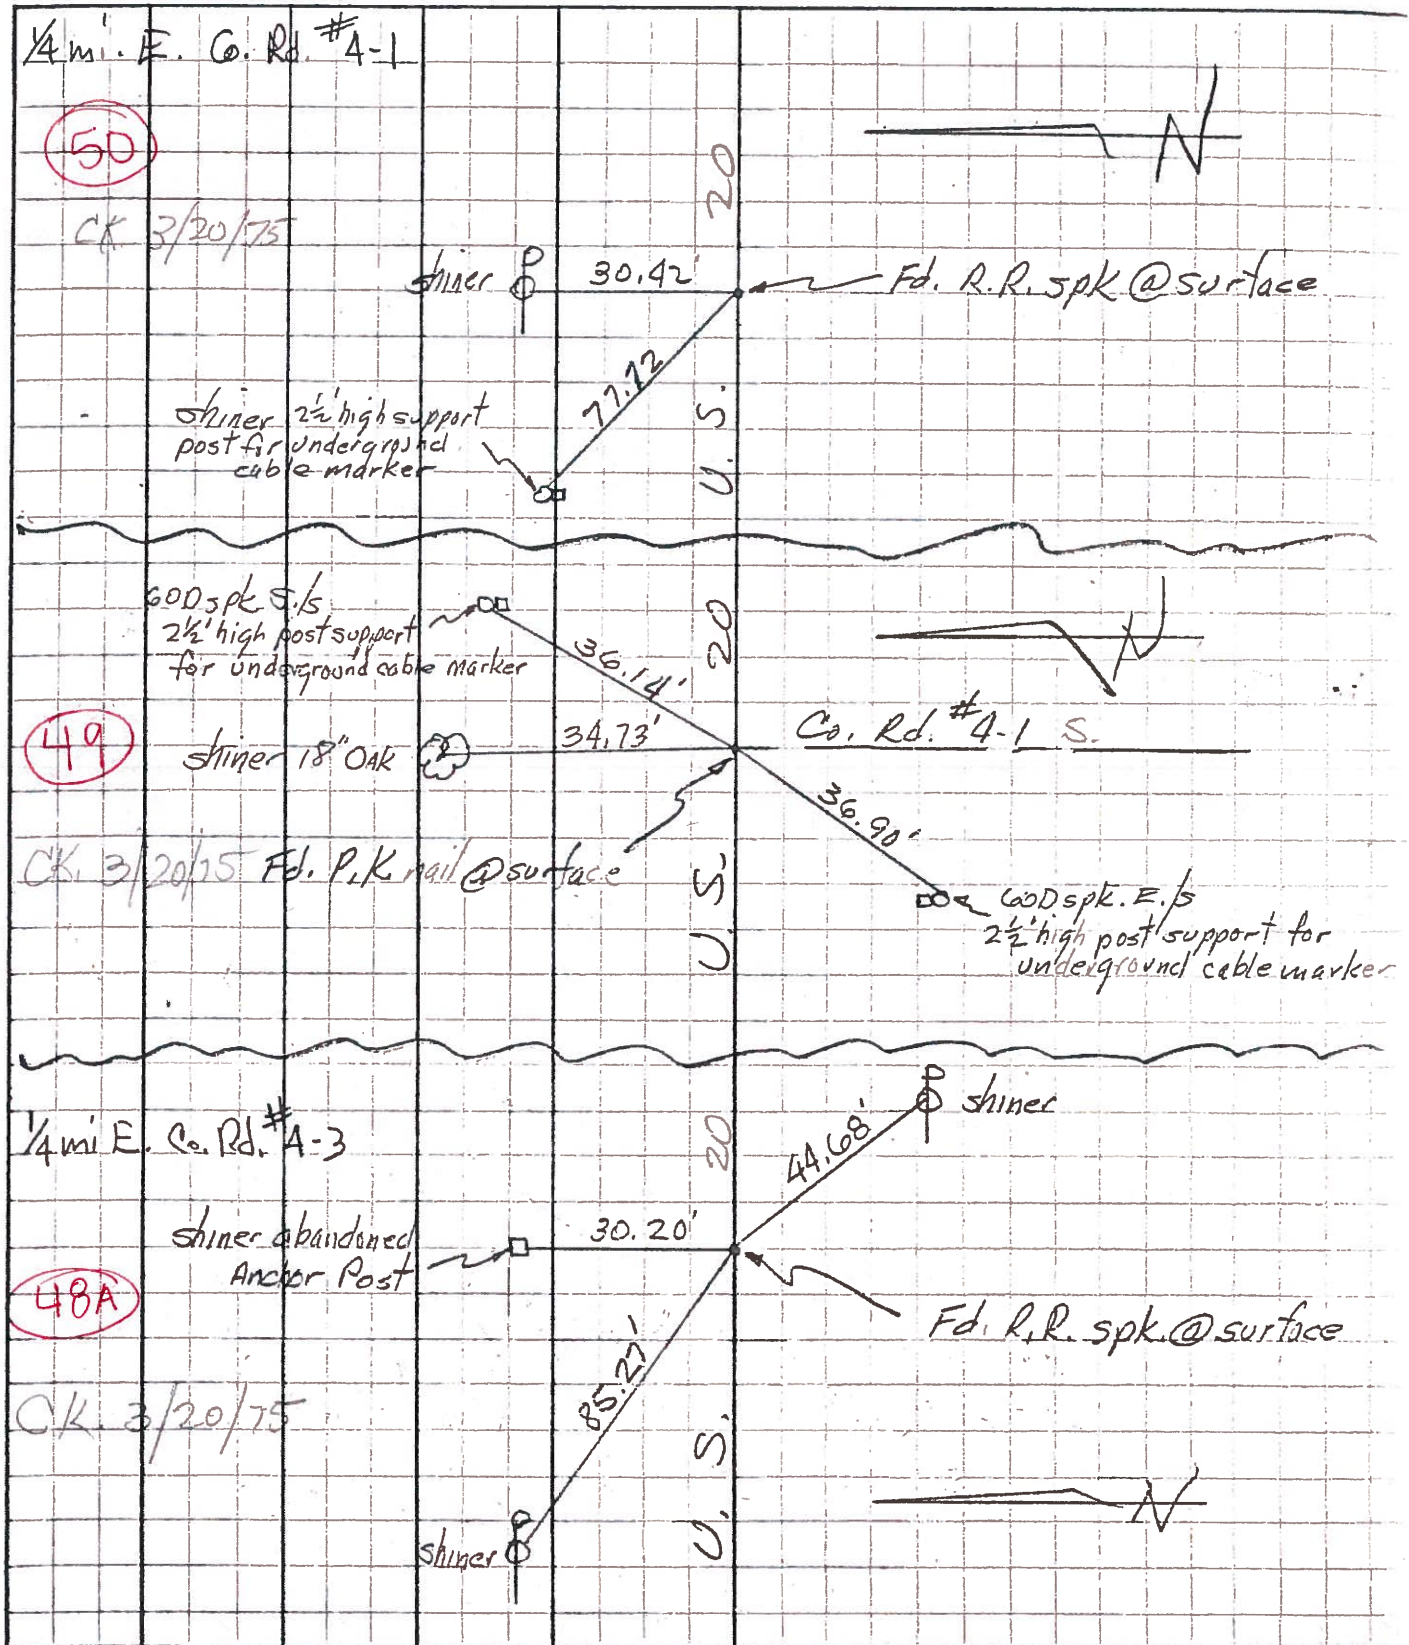 1/4 mi. E. Co. Rd. #4-1
50
N
20
CK 3/20/75
shiner
30.42'
Fd. R.R. spk @ surface
77.72
shiner 2½' high support
post for underground
cable marker
U.S.
60D spk S./s
2½' high post support
for underground cable marker
36.14'
20
N
49
shiner 18" OAK
34.73'
Co. Rd. #4-1 S.
36.90'
CK. 3/20/75
Fd. P.K. nail @ surface
U.S.
60D spk. E./s
2½' high post support for
underground cable marker
1/4 mi E. Co. Rd. #4-3
20
44.68'
shiner
shiner abandoned
Anchor Post
30.20'
48A
Fd. R.R. spk. @ surface
85.27'
CK. 3/20/75
U.S.
N
shiner